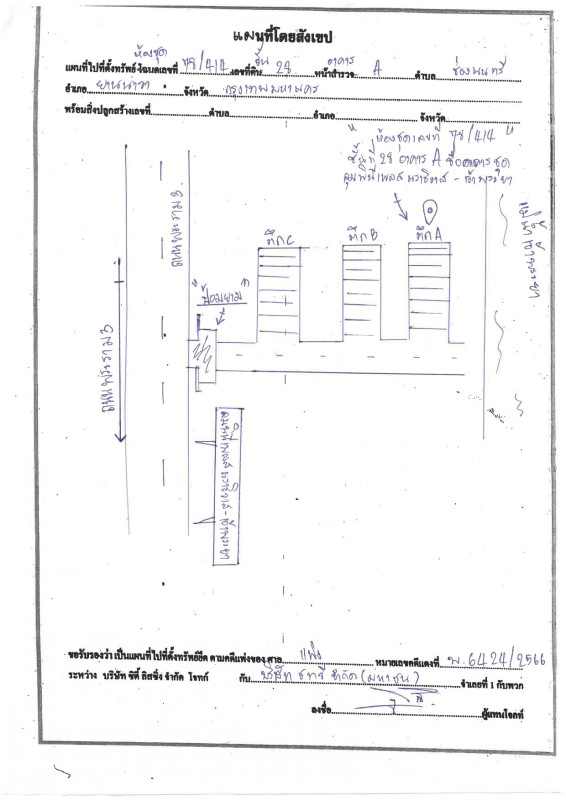 แผนที่โดยสังเขป
ห้องชุด ชั้น อาคาร
แผนที่ไปที่ตั้งทรัพย์ โฉนดเลขที่ 78/414 เลขที่ดิน 28 หน้าสำรวจ A ตำบล ช่องนนทรี
อำเภอ ยานนาวา จังหวัด กรุงเทพมหานคร
พร้อมสิ่งปลูกสร้างเลขที่ ตำบล อำเภอ จังหวัด
"ห้องชุดเลขที่ 78/414"
ชั้นที่ 28 อาคาร A ชื่ออาคารชุด
ลุมพินี เพลส นราธิวาส - เจ้าพระยา
ตึก C ตึก B ตึก A
แม่น้ำเจ้าพระยา
ถนนพระราม 3
"ป้อมยาม"
ถนนพระราม 3
ลุมพินี เพลส นราธิวาส - เจ้าพระยา
ขอรับรองว่าเป็นแผนที่ไปที่ตั้งทรัพย์ยึด ตามคดีแพ่งของศาล แพ่ง หมายเลขคดีแดงที่ พ.6424/2566
ระหว่าง บริษัท ซิตี้ ลิสซิ่ง จำกัด โจทก์ กับ บริษัท จำกัด (มหาชน) จำเลยที่ 1 กับพวก
ลงชื่อ ผู้แทนโจทก์